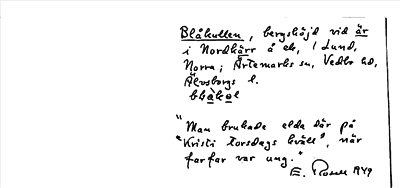 Blåkullen, bergshöjd vid är
i Nordkärr å ek, / Lund,
Norra; Ärtemarks sn, Vedbo hd,
Älvsborgs l.
"Man brukade elda där på
"Kristi Torsdags kväll", när
farfar var ung."
E. 1949